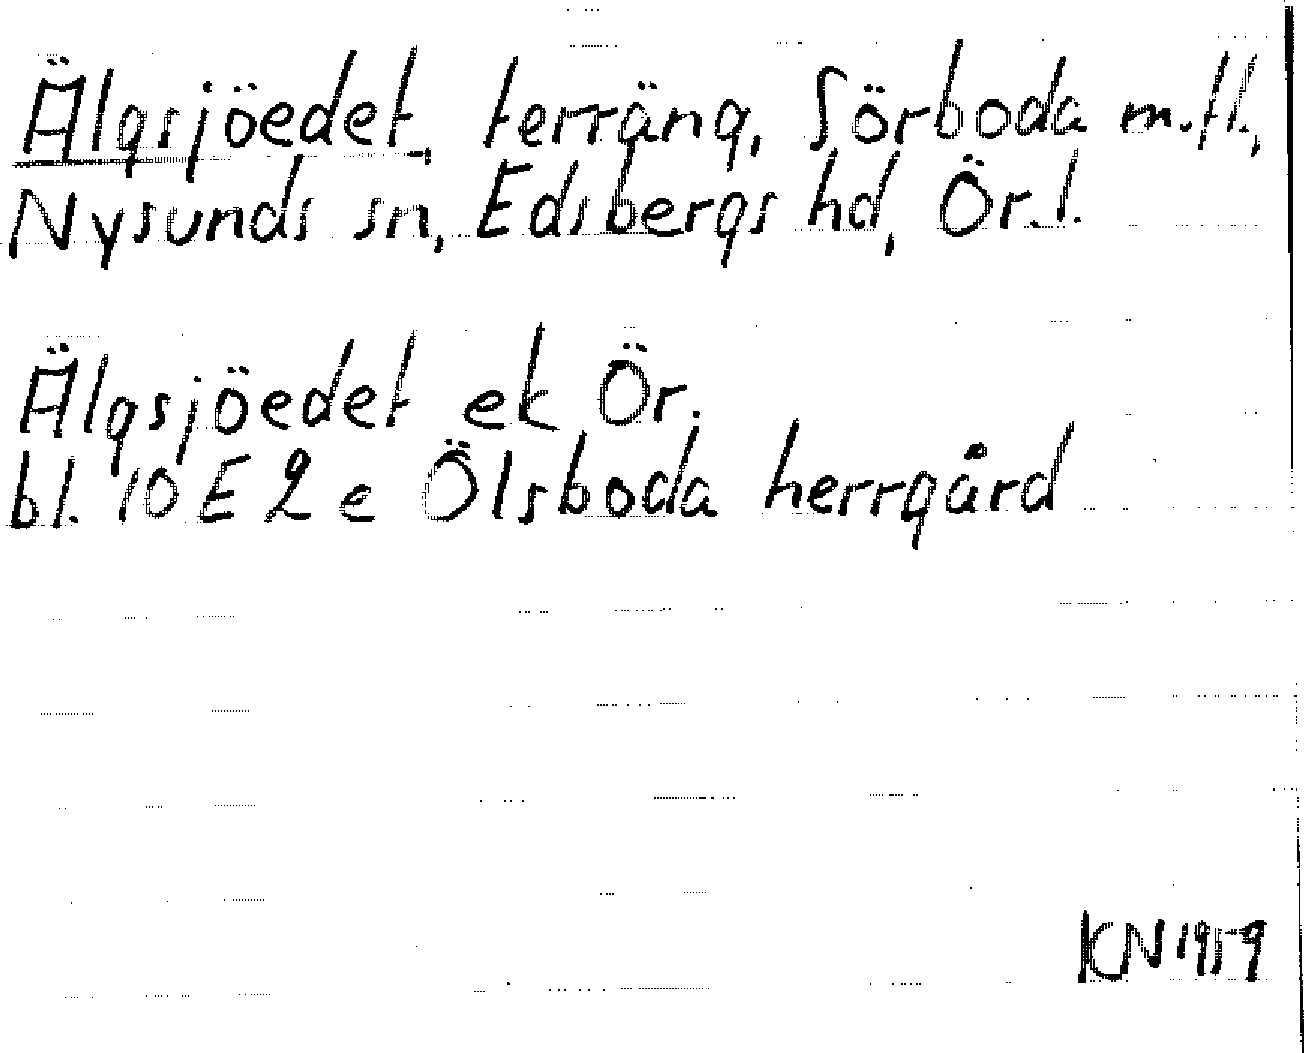 Älgsjöedet, terräng, Sörboda m.fl.,
Nysunds sn, Edsbergs hd, Ör.l.
Älgsjöedet ek Ör.
bl. 10 E 2 e Ölsboda herrgård
KN 1959